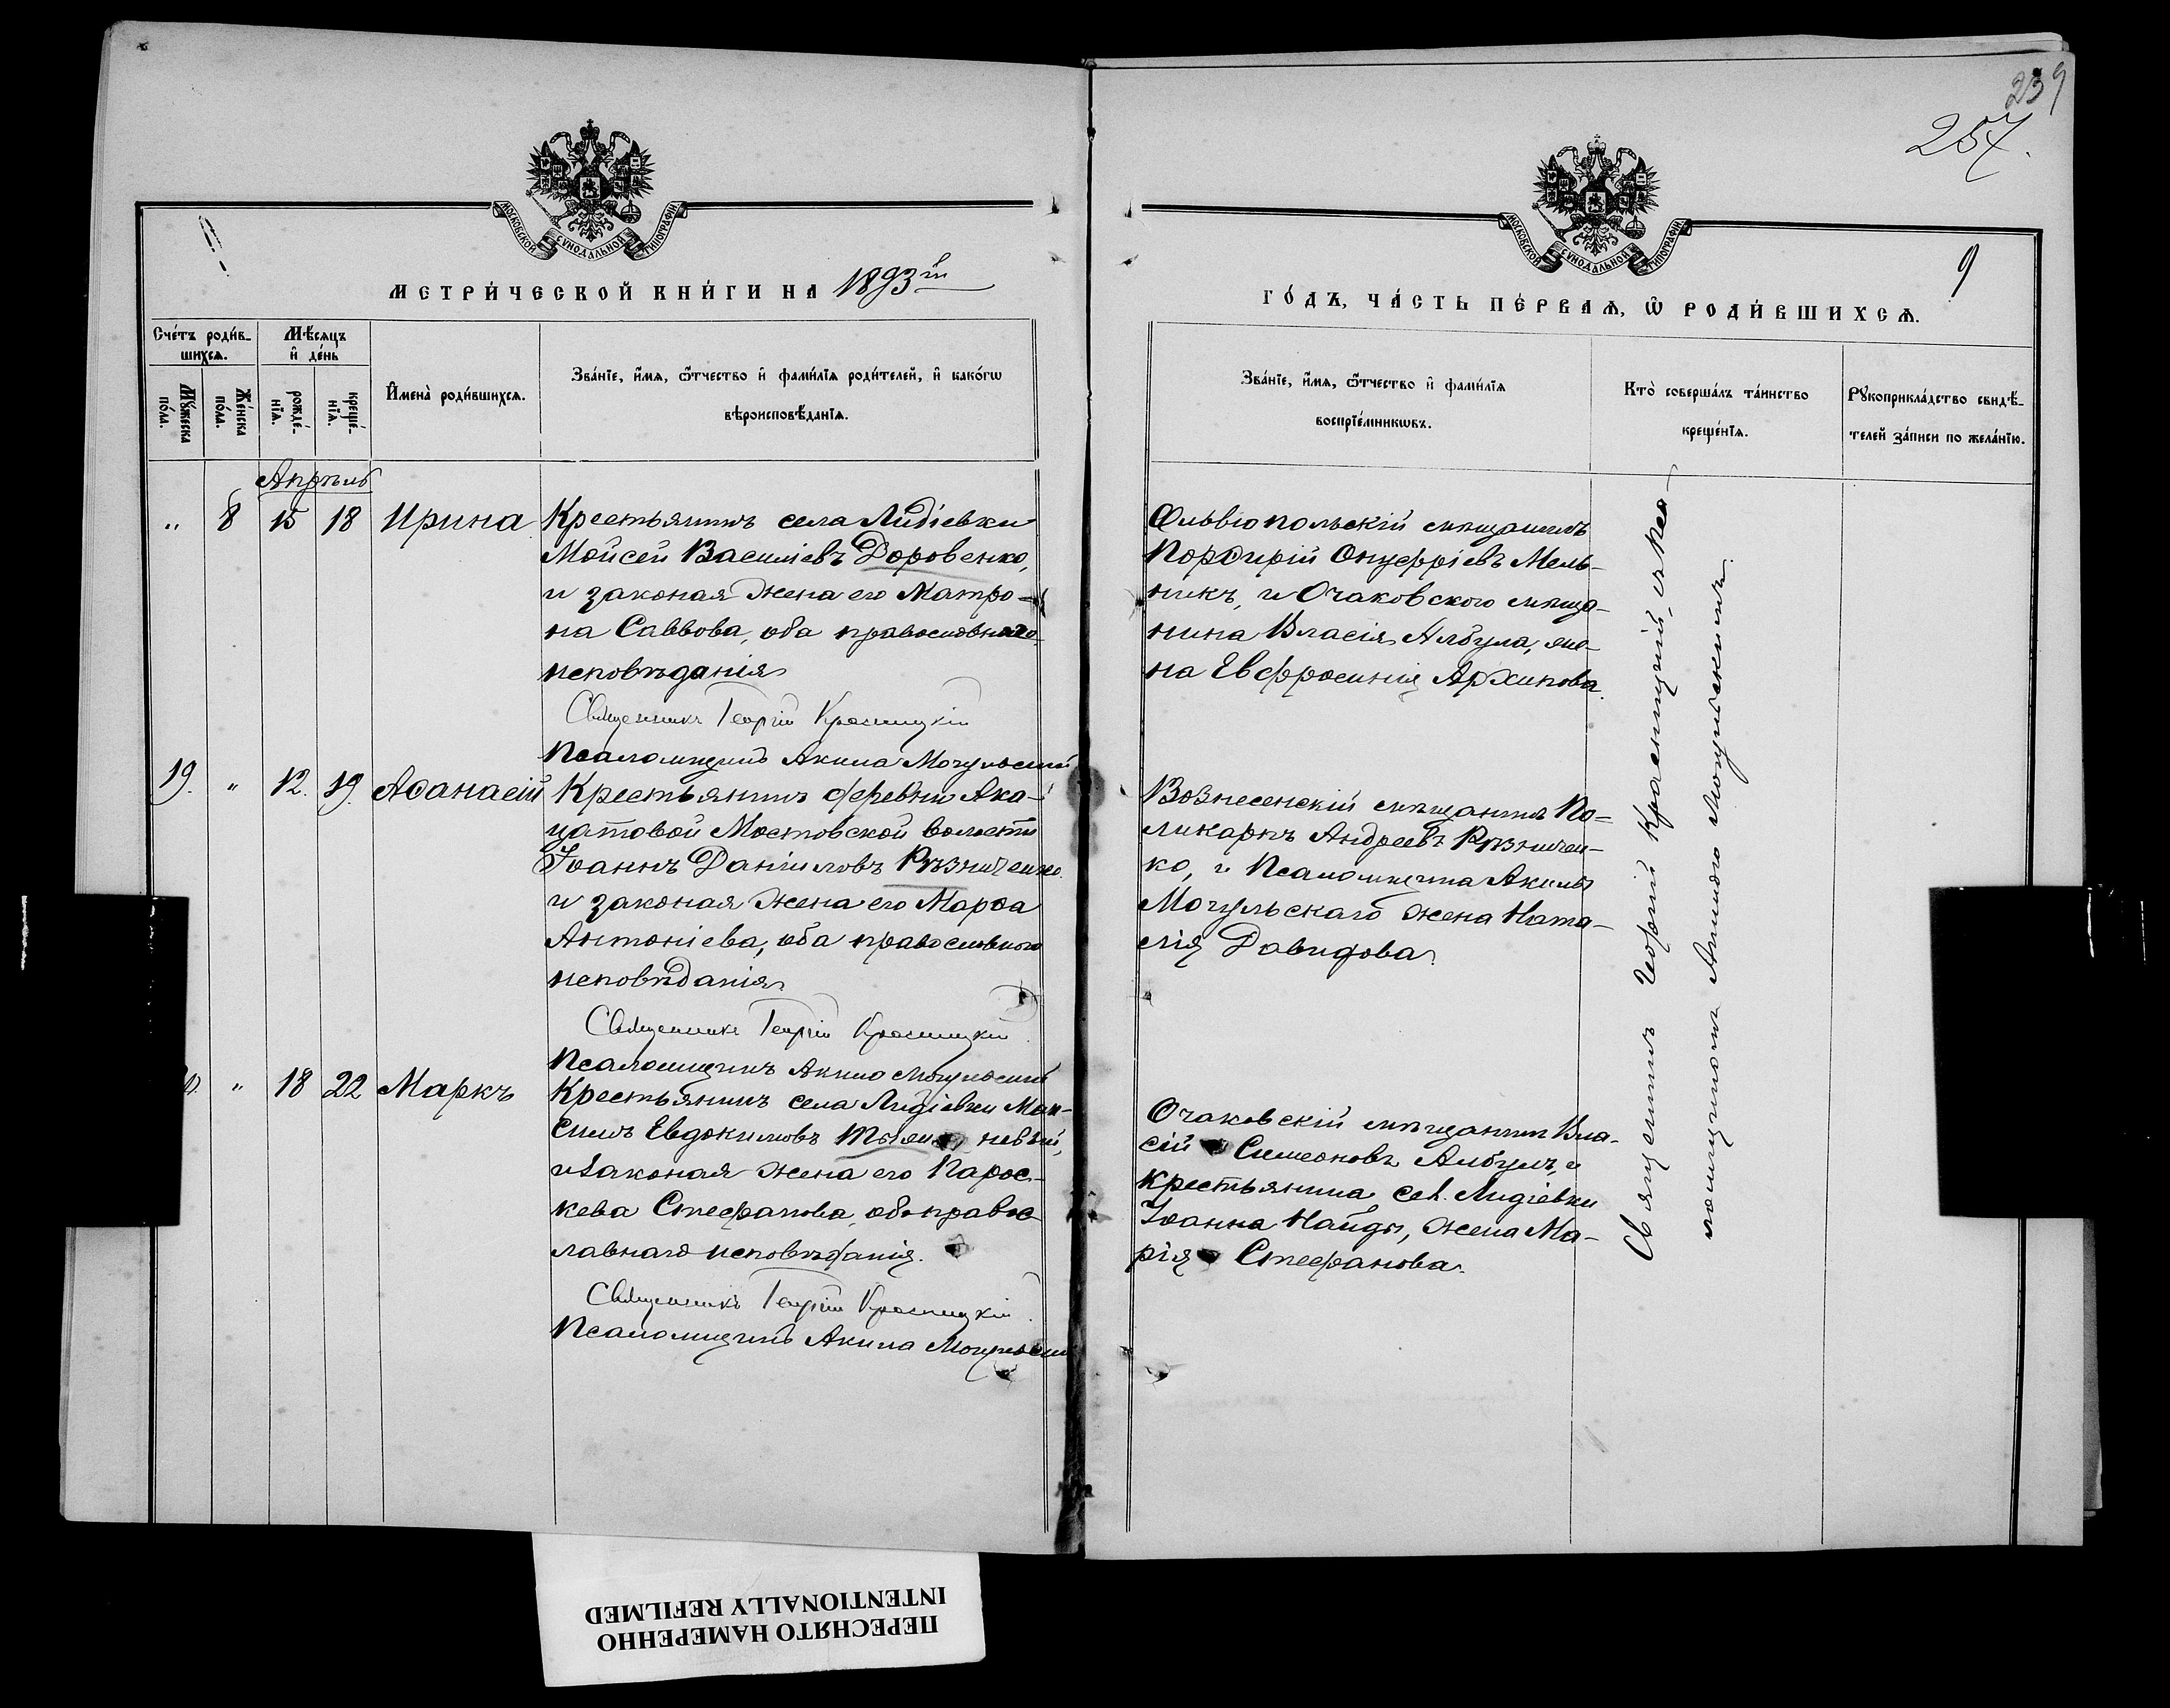 239
257.
9
МОСКОВСКОЙ СУНОДАЛЬНОЙ ТИПОГРАФІИ
МЕТРИ́ЧЕСКОЙ КНИ́ГИ НА 1893й
Сче́тъ роди́в-
шихсѧ.
Мѣ́сѧцъ
и҆ де́нь
Мꙋ́жеска
по́ла.
Же́нска
по́ла.
рожде́-
нїѧ.
креще́-
нїѧ.
И҆мена̀ роди́вшихсѧ.
Зва́нїе, и҆́мѧ, ѻ҆́тчество и҆ фами́лїѧ роди́телей, и҆ како́гѡ
вѣроисповѣ́данїѧ.
Апрѣль
„ 8 15 18 Ирина
Крестьянинъ села Лидіевки
Мойсей Василіевъ Доровенко,
и законая жена его Матро-
на Саввова, оба православнаго
исповѣданія
Священникъ Георгій Красницкій
Псаломщикъ Акила Могульскій
19. „ 12. 19. Аѳанасій
Крестьянинъ деревни Ака-
цатовой Мостовской волости
Іоаннъ Даніиловъ Рѣзниченко
и законая жена его Марѳа
Антоніева, оба православного
исповѣданія
Священникъ Георгій Красницкій
Псаломщикъ Акила Могульскій
„ 18 22 Маркъ
Крестьянинъ села Лидіевки Мак-
симъ Евдокимовъ
и законая жена его Парас-
кева Стефанова, оба правос-
лавнаго исповѣданія.
Священникъ Георгій Красницкій
Псаломщикъ Акила Могульскій
МОСКОВСКОЙ СУНОДАЛЬНОЙ ТИПОГРАФІИ
ГО́ДЪ, ЧА́СТЬ ПЕ́РВАѦ, Ѡ҆ РОДИ́ВШИХСѦ.
Зва́нїе, и҆́мѧ, ѻ҆́тчество и҆ фами́лїѧ
воспрїе́мникѡвъ.
Кто̀ соверша́лъ та́инство
креще́нїѧ.
Рꙋкоприкла́дство свидѣ́-
телей за́писи по жела́нїю.
Ольвіопольскій мѣщанинъ
Порфирій Онуфріевъ Мель-
никъ, и Очаковского мѣща-
нина Власія Албула, же-
на Евфросинія Архипова.
Вознесенскій мѣщанинъ По-
ликарпъ Андреевъ Рѣзничен-
ко, и Псаломщика Акилы
Могульскаго жена Ната-
лія Давидова
Очаковскій мѣщанинъ Вла-
сій Симеоновъ Албулъ, и
крестьянина сел. Лидіевки
Іоанна Найды, жена Ма-
рія Стефанова.
Священникъ Георгій Красницкій, съ Пса-
ломщикомъ Акилою Могульскимъ.
ПЕРЕСНЯТО НАМЕРЕННО
INTENTIONALLY REFILMED